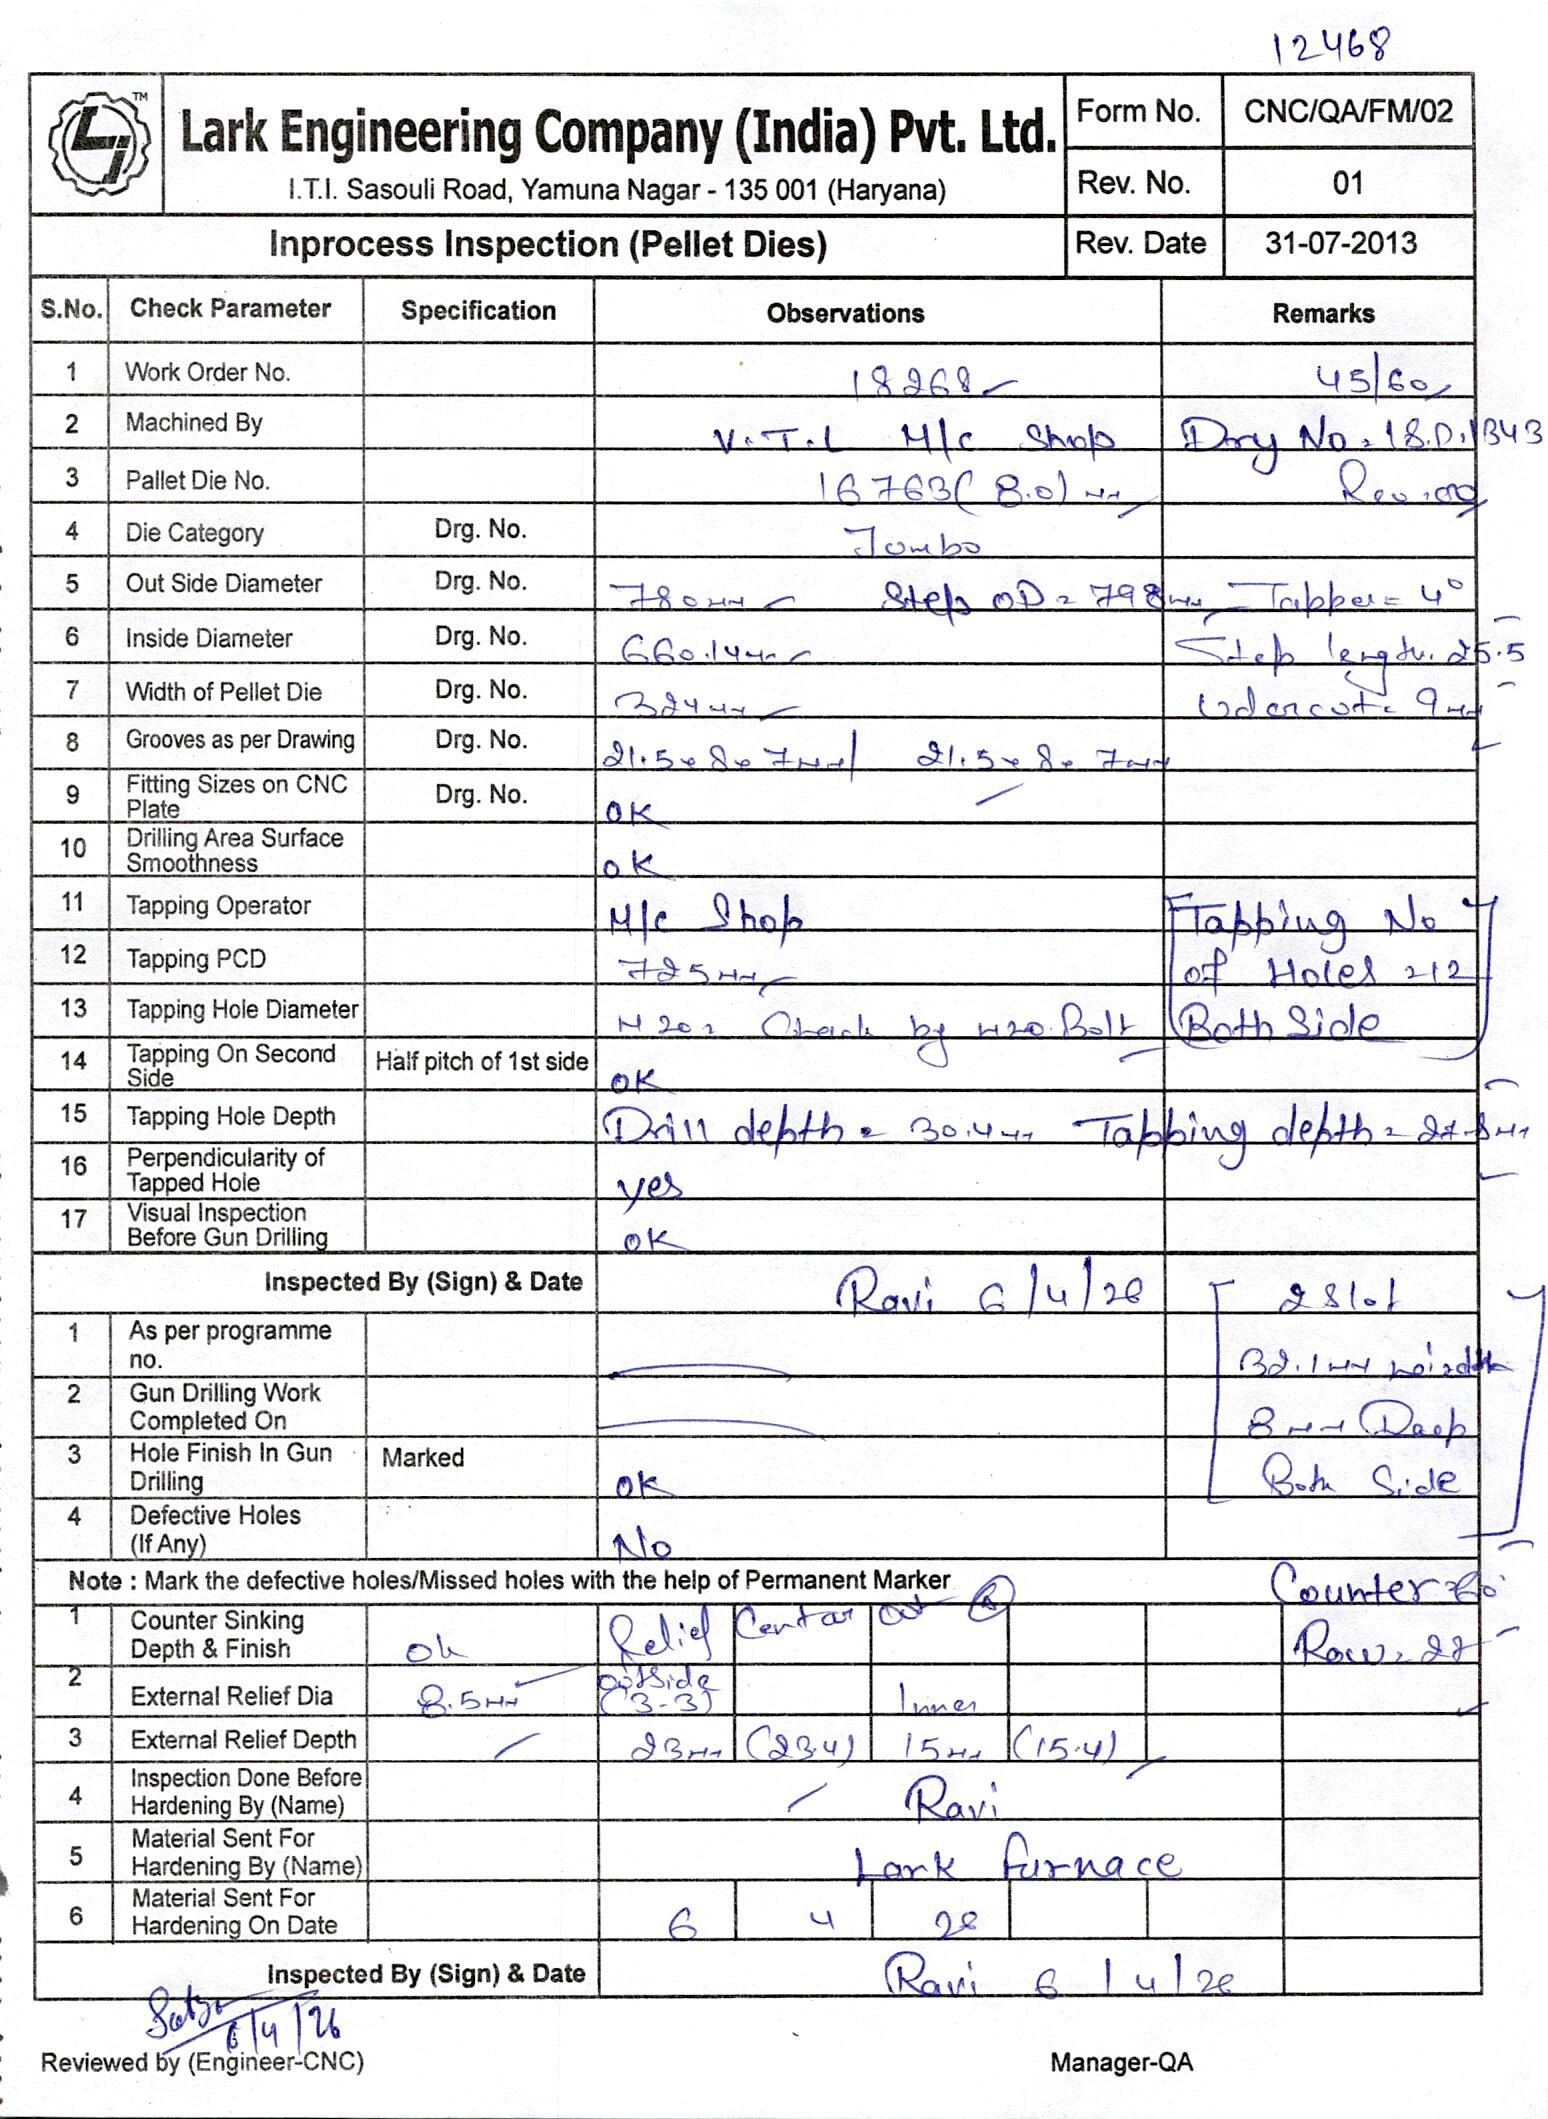 12468
TM
Lark Engineering Company (India) Pvt. Ltd.
I.T.I. Sasouli Road, Yamuna Nagar - 135 001 (Haryana)
Form No. CNC/QA/FM/02
Rev. No. 01
Inprocess Inspection (Pellet Dies) Rev. Date 31-07-2013
S.No. Check Parameter Specification Observations Remarks
1 Work Order No. 18268 45/60
2 Machined By V.T.L M/c Shop Drg No. 18.D.1343
3 Pallet Die No. 16763 (8.0) mm Rev.
4 Die Category Drg. No. Jumbo
5 Out Side Diameter Drg. No. 780mm Step OD = 798mm Tapper = 4°
6 Inside Diameter Drg. No. 660.14mm Step length. 25.5
7 Width of Pellet Die Drg. No. 324mm Udercut = 9mm
8 Grooves as per Drawing Drg. No. 21.5 x 8 x 7mm / 21.5 x 8 x 7mm
9 Fitting Sizes on CNC Plate Drg. No. OK
10 Drilling Area Surface Smoothness OK
11 Tapping Operator M/c Shop Tapping No
12 Tapping PCD 725mm of Holes = 12
13 Tapping Hole Diameter M20 = Check by M20 Bolt Both Side
14 Tapping On Second Side Half pitch of 1st side OK
15 Tapping Hole Depth Drill depth = 30.4mm Tapping depth = 27.8mm
16 Perpendicularity of Tapped Hole yes
17 Visual Inspection Before Gun Drilling OK
Inspected By (Sign) & Date Ravi 6/4/26 2 Slot
1 As per programme no. 32.1mm
2 Gun Drilling Work Completed On 8mm Deep
3 Hole Finish In Gun Drilling Marked OK Both Side
4 Defective Holes (If Any) No
Note : Mark the defective holes/Missed holes with the help of Permanent Marker Counter
1 Counter Sinking Depth & Finish Ok Relief Center out Row = 22
2 External Relief Dia 8.5mm outside (3-3) Inner
3 External Relief Depth 23mm (23.4) 15mm (15.4)
4 Inspection Done Before Hardening By (Name) Ravi
5 Material Sent For Hardening By (Name) Lark Furnace
6 Material Sent For Hardening On Date 6 4 26
Inspected By (Sign) & Date Ravi 6/4/26
6/4/26
Reviewed by (Engineer-CNC) Manager-QA